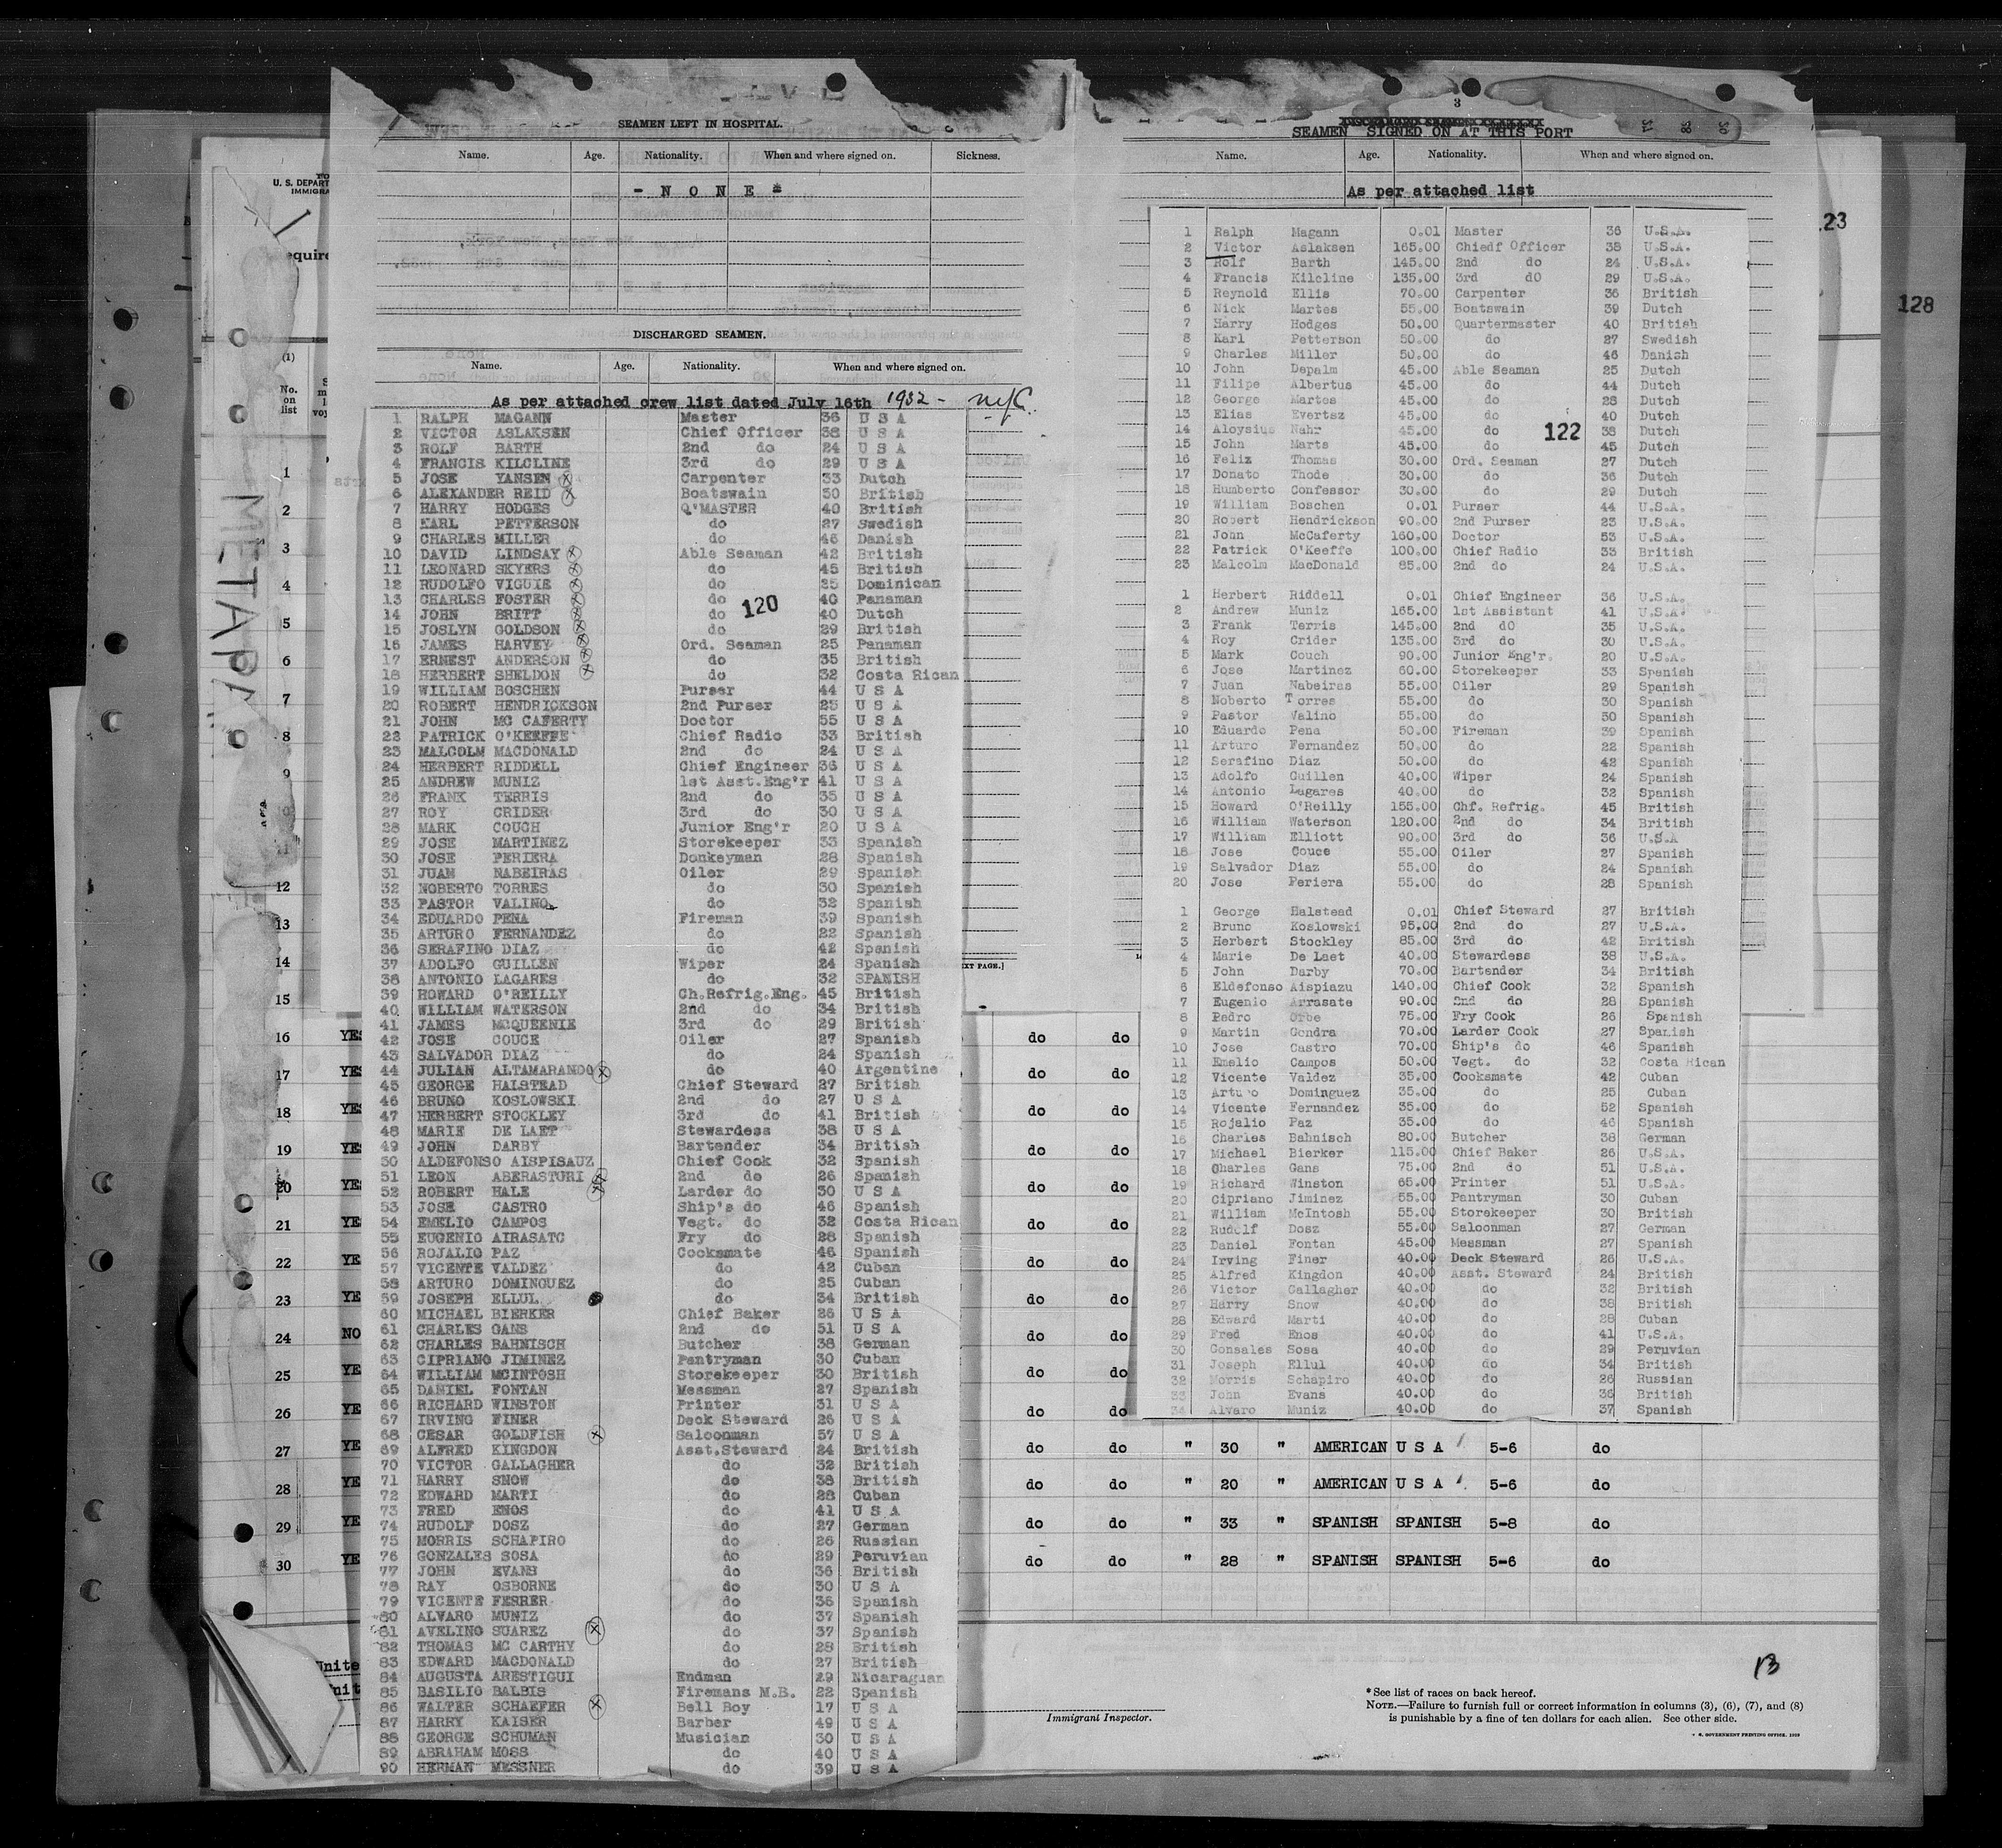 SEAMEN LEFT IN HOSPITAL.
Name. Age. Nationality. When and where signed on. Sickness.
- N O N E -
DISCHARGED SEAMEN.
Name. Age. Nationality. When and where signed on.
As per attached crew list dated July 16th 1932 - NYC.
1 RALPH MAGANN Master 36 U S A
2 VICTOR ASLAKSEN Chief Officer 38 U S A
3 ROLF BARTH 2nd do 24 U S A
4 FRANCIS KILCLINE 3rd do 29 U S A
5 JOSE YANSEN Carpenter 33 Dutch
6 ALEXANDER REID Boatswain 30 British
7 HARRY HODGES Q'MASTER 40 British
8 KARL PETTERSON do 27 Swedish
9 CHARLES MILLER do 46 Danish
10 DAVID LINDSAY Able Seaman 42 British
11 LEONARD SKYERS do 45 British
12 RUDOLFO VIGUIE do 25 Dominican
13 CHARLES FOSTER do 40 Panaman
120
14 JOHN BRITT do 40 Dutch
15 JOSLYN GOLDSON do 29 British
16 JAMES HARVEY Ord. Seaman 25 Panaman
17 ERNEST ANDERSON do 35 British
18 HERBERT SHELDON do 32 Costa Rican
19 WILLIAM BOSCHEN Purser 44 U S A
20 ROBERT HENDRICKSON 2nd Purser 25 U S A
21 JOHN MC CAFERTY Doctor 55 U S A
22 PATRICK O'KEEFFE Chief Radio 33 British
23 MALCOLM MACDONALD 2nd do 24 U S A
24 HERBERT RIDDELL Chief Engineer 36 U S A
25 ANDREW MUNIZ 1st Asst.Eng'r 41 U S A
26 FRANK TERRIS 2nd do 35 U S A
27 ROY CRIDER 3rd do 30 U S A
28 MARK COUCH Junior Eng'r 20 U S A
29 JOSE MARTINEZ Storekeeper 33 Spanish
30 JOSE PERIERA Donkeyman 28 Spanish
31 JUAN NABEIRAS Oiler 29 Spanish
32 NOBERTO TORRES do 30 Spanish
33 PASTOR VALINO do 32 Spanish
34 EDUARDO PENA Fireman 39 Spanish
35 ARTURO FERNANDEZ do 22 Spanish
36 SERAFINO DIAZ do 42 Spanish
37 ADOLFO GUILLEN Wiper 24 Spanish
38 ANTONIO LAGARES do 32 SPANISH
39 HOWARD O'REILLY Ch.Refrig.Eng. 45 British
40 WILLIAM WATERSON 2nd do 34 British
41 JAMES MCQUEENIE 3rd do 29 British
42 JOSE COUCE Oiler 27 Spanish
43 SALVADOR DIAZ do 24 Spanish
44 JULIAN ALTAMARANDO do 40 Argentine
45 GEORGE HALSTEAD Chief Steward 27 British
46 BRUNO KOSLOWSKI 2nd do 27 U S A
47 HERBERT STOCKLEY 3rd do 41 British
48 MARIE DE LAET Stewardess 38 U S A
49 JOHN DARBY Bartender 34 British
50 ALDEFONSO AISPISAUZ Chief Cook 32 Spanish
51 LEON ABERASTURI 2nd do 26 Spanish
52 ROBERT HALE Larder do 30 U S A
53 JOSE CASTRO Ship's do 46 Spanish
54 EMELIO CAMPOS Vegt. do 32 Costa Rican
55 EUGENIO AIRASATC Fry do 28 Spanish
56 ROJALIO PAZ Cooksmate 46 Spanish
57 VICENTE VALDEZ do 42 Cuban
58 ARTURO DOMINGUEZ do 25 Cuban
59 JOSEPH ELLUL do 34 British
60 MICHAEL BIERKER Chief Baker 26 U S A
61 CHARLES GANS 2nd do 51 U S A
62 CHARLES BAHNISCH Butcher 38 German
63 CIPRIANO JIMINEZ Pantryman 30 Cuban
64 WILLIAM MCINTOSH Storekeeper 30 British
65 DANIEL FONTAN Messman 27 Spanish
66 RICHARD WINSTON Printer 31 U S A
67 IRVING FINER Deck Steward 26 U S A
68 CESAR GOLDFISH Saloonman 57 U S A
69 ALFRED KINGDON Asst.Steward 24 British
70 VICTOR GALLAGHER do 32 British
71 HARRY SNOW do 38 British
72 EDWARD MARTI do 28 Cuban
73 FRED ENOS do 41 U S A
74 RUDOLF DOSZ do 27 German
75 MORRIS SCHAPIRO do 26 Russian
76 GONZALES SOSA do 29 Peruvian
77 JOHN EVANS do 36 British
78 RAY OSBORNE do 30 U S A
79 VICENTE FERRER do 35 Spanish
80 ALVARO MUNIZ do 37 Spanish
81 AVELINO SUAREZ do 37 Spanish
82 THOMAS MC CARTHY do 28 British
83 EDWARD MACDONALD do 27 British
84 AUGUSTA ARESTIGUI Endman 29 Nicaraguan
85 BASILIO BALBIS Firemans M.B. 22 Spanish
86 WALTER SCHAEFER Bell Boy 17 U S A
87 HARRY KAISER Barber 49 U S A
88 GEORGE SCHUMAN Musician 30 U S A
89 ABRAHAM MOSS do 40 U S A
90 HERMAN MESSNER do 39 U S A
3
SEAMEN SIGNED ON AT THIS PORT
Name. Age. Nationality. When and where signed on.
As per attached list
1 Ralph Magann 0.01 Master 36 U.S.A.
2 Victor Aslaksen 165.00 Chiedf Officer 38 U.S.A.
3 Rolf Barth 145.00 2nd do 24 U.S.A.
4 Francis Kilcline 135.00 3rd dO 29 U.S.A.
5 Reynold Ellis 70.00 Carpenter 36 British
6 Nick Martes 55.00 Boatswain 39 Dutch
7 Harry Hodges 50.00 Quartermaster 40 British
8 Karl Petterson 50.00 do 27 Swedish
9 Charles Miller 50.00 do 46 Danish
10 John Depalm 45.00 Able Seaman 25 Dutch
11 Filipe Albertus 45.00 do 44 Dutch
12 George Martes 45.00 do 28 Dutch
13 Elias Evertsz 45.00 do 40 Dutch
14 Aloysius Nahr 45.00 do 38 Dutch
122
15 John Marts 45.00 do 45 Dutch
16 Feliz Thomas 30.00 Ord. Seaman 27 Dutch
17 Donato Thode 30.00 do 36 Dutch
18 Humberto Confessor 30.00 do 29 Dutch
19 William Boschen 0.01 Purser 44 U.S.A.
20 Robert Hendrickson 90.00 2nd Purser 23 U.S.A.
21 John McCaferty 160.00 Doctor 53 U.S.A.
22 Patrick O'Keeffe 100.00 Chief Radio 33 British
23 Malcolm MacDonald 85.00 2nd do 24 U.S.A.
1 Herbert Riddell 0.01 Chief Engineer 36 U.S.A.
2 Andrew Muniz 165.00 1st Assistant 41 U.S.A.
3 Frank Terris 145.00 2nd dO 35 U.S.A.
4 Roy Crider 135.00 3rd do 30 U.S.A.
5 Mark Couch 90.00 Junior Eng'r. 20 U.S.A.
6 Jose Martinez 60.00 Storekeeper 33 Spanish
7 Juan Nabeiras 55.00 Oiler 29 Spanish
8 Noberto Torres 55.00 do 30 Spanish
9 Pastor Valino 55.00 do 30 Spanish
10 Eduardo Pena 50.00 Fireman 39 Spanish
11 Arturo Fernandez 50.00 do 22 Spanish
12 Serafino Diaz 50.00 do 42 Spanish
13 Adolfo Guillen 40.00 Wiper 24 Spanish
14 Antonio Lagares 40.00 do 32 Spanish
15 Howard O'Reilly 155.00 Chf. Refrig. 45 British
16 William Waterson 120.00 2nd do 34 British
17 William Elliott 90.00 3rd do 36 U.S.A
18 Jose Couce 55.00 Oiler 27 Spanish
19 Salvador Diaz 55.00 do 24 Spanish
20 Jose Periera 55.00 do 28 Spanish
1 George Halstead 0.01 Chief Steward 27 British
2 Bruno Koslowski 95.00 2nd do 27 U.S.A.
3 Herbert Stockley 85.00 3rd do 42 British
4 Marie De Laet 40.00 Stewardess 38 U.S.A.
5 John Darby 70.00 Bartender 34 British
6 Eldefonso Aispiazu 140.00 Chief Cook 32 Spanish
7 Eugenio Arrasate 90.00 2nd do 28 Spanish
8 Pedro Orbe 75.00 Fry Cook 26 Spanish
9 Martin Gondra 70.00 Larder Cook 27 Spanish
10 Jose Castro 70.00 Ship's do 46 Spanish
11 Emelio Campos 50.00 Vegt. do 32 Costa Rican
12 Vicente Valdez 35.00 Cooksmate 42 Cuban
13 Arturo Dominguez 35.00 do 25 Cuban
14 Vicente Fernandez 35.00 do 52 Spanish
15 Rojalio Paz 35.00 do 46 Spanish
16 Charles Bahnisch 80.00 Butcher 38 German
17 Michael Bierker 115.00 Chief Baker 26 U.S.A.
18 Charles Gans 75.00 2nd do 51 U.S.A.
19 Richard Winston 65.00 Printer 51 U.S.A.
20 Cipriano Jiminez 55.00 Pantryman 30 Cuban
21 William McIntosh 55.00 Storekeeper 30 British
22 Rudolf Dosz 55.00 Saloonman 27 German
23 Daniel Fontan 45.00 Messman 27 Spanish
24 Irving Finer 40.00 Deck Steward 26 U.S.A.
25 Alfred Kingdon 40.00 Asst. Steward 24 British
26 Victor Gallagher 40.00 do 32 British
27 Harry Snow 40.00 do 38 British
28 Edward Marti 40.00 do 28 Cuban
29 Fred Enos 40.00 do 41 U.S.A.
30 Gonsales Sosa 40.00 do 29 Peruvian
31 Joseph Ellul 40.00 do 34 British
32 Morris Schapiro 40.00 do 26 Russian
33 John Evans 40.00 do 36 British
34 Alvaro Muniz 40.00 do 37 Spanish
23
128
U. S. DEPART
IMMIGRA
equire
METAPA
(1)
No.
on
list
1
2
3
4
5
6
7
8
9
10
11
12
13
14
15
EXT PAGE.]
16 YES do do
17 YES do do
18 YES do do
19 YES do do
20 YES do do
21 YES do do
22 YE do do
23 YE do do
24 NO do do
25 YE do do
26 YE do do
27 YE do do " 30 " AMERICAN U S A 5-6 do
28 YE do do " 20 " AMERICAN U S A 5-6 do
29 YE do do " 33 " SPANISH SPANISH 5-8 do
30 YE do do " 28 " SPANISH SPANISH 5-6 do
Unite
Unit
Immigrant Inspector.
13
* See list of races on back hereof.
NOTE.—Failure to furnish full or correct information in columns (3), (6), (7), and (8)
is punishable by a fine of ten dollars for each alien. See other side.
U. S. GOVERNMENT PRINTING OFFICE: 1929